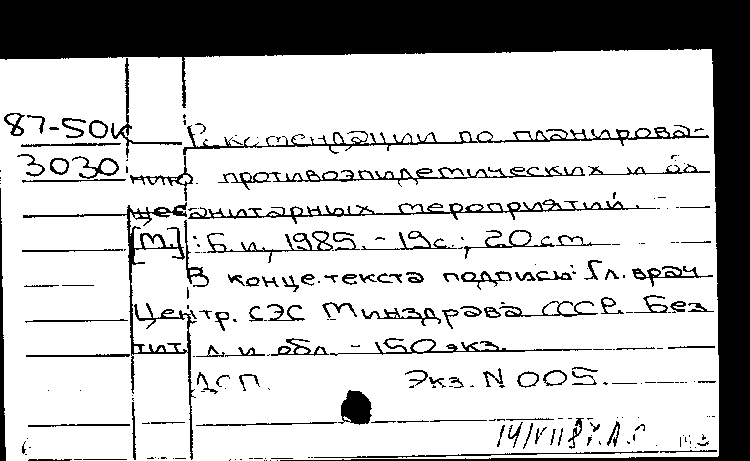 87-50К Рекомендации по планирова-
3030 нию противоэпидемических и об
щесанитарных мероприятий. -
[М.]: Б. и., 1985. - 19 с.; 20 см.
В конце текста подпись: Гл. врач
Центр. СЭС Минздрава СССР. Без
тит. л. и обл. - 150 экз.
ДСП. Экз. N 005.
14/VII 87. А.С.